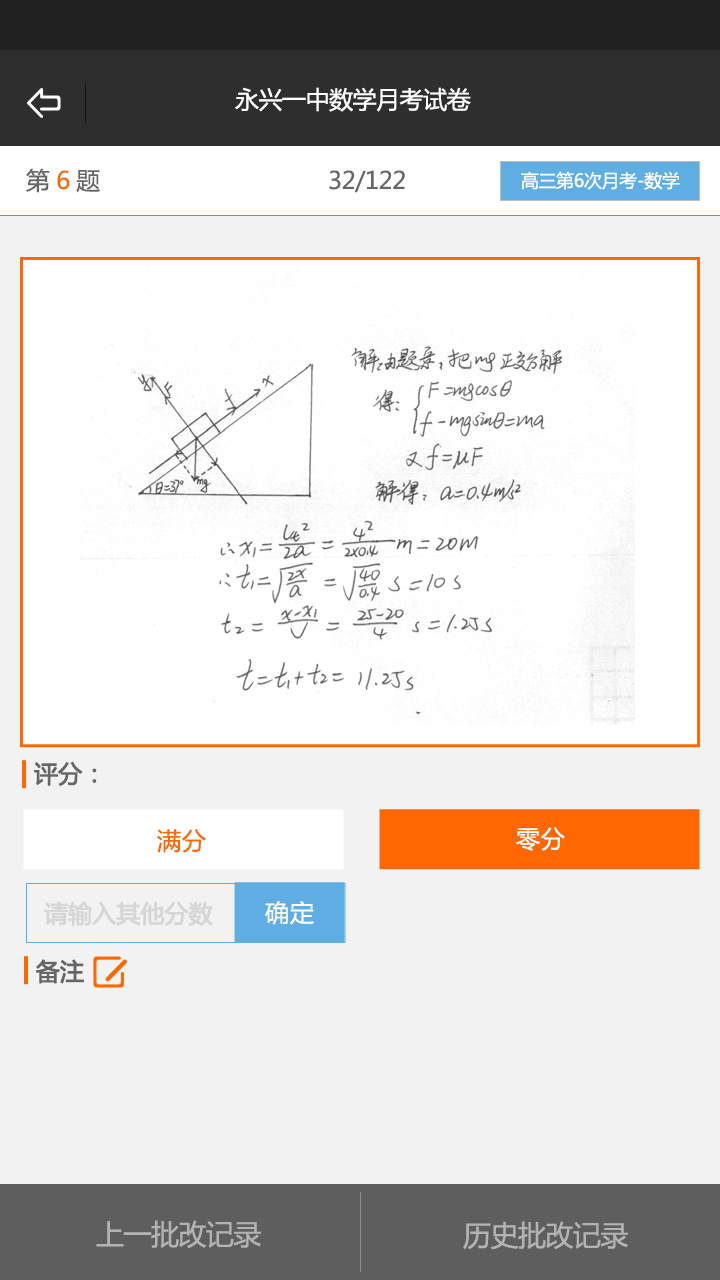 永兴一中数学月考试卷
第 6 题
32/122
高三第6次月考-数学
y
F
f
x
θ=37°
mg
解:由题意,把mg正交分解
得: F=mgcosθ
f-mgsinθ=ma
又f=μF
解得: a=0.4m/s²
∴x₁=Vt²/2a=4²/2×0.4 m=20m
∴t₁=√2x/a=√40/0.4 s=10s
t₂=x-x₁/V=25-20/4 s=1.25s
t=t₁+t₂=11.25s
评分:
满分
零分
请输入其他分数
确定
备注
上一批改记录
历史批改记录